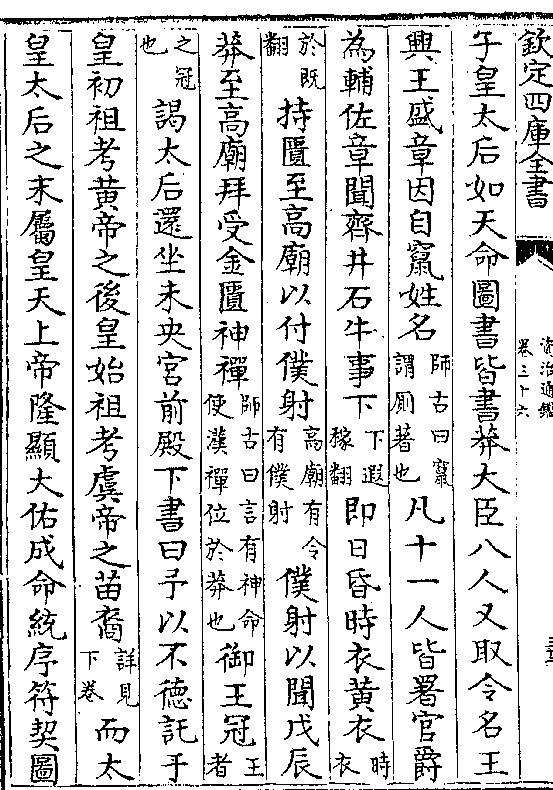 欽定四庫全書
資治通鑑
卷三十六
子皇太后如天命圖書皆書莽大臣八人又取令名王
興王盛章因自竄姓名師古曰竄謂厠著也凡十一人皆署官爵
為輔佐章聞齊井石牛事下下遐稼翻即日昏時衣黄衣時衣
於既翻持匱至高廟以付僕射高廟有令有僕射僕射以聞戊辰
莽至高廟拜受金匱神禪師古曰言有神命使漢禪位於莽也御王冠王者
之冠也謁太后還坐未央宫前殿下書曰予以不德託于
皇初祖考黄帝之後皇始祖考虞帝之苗裔詳見下卷而太
皇太后之末屬皇天上帝隆顯大佑成命統序符契圖